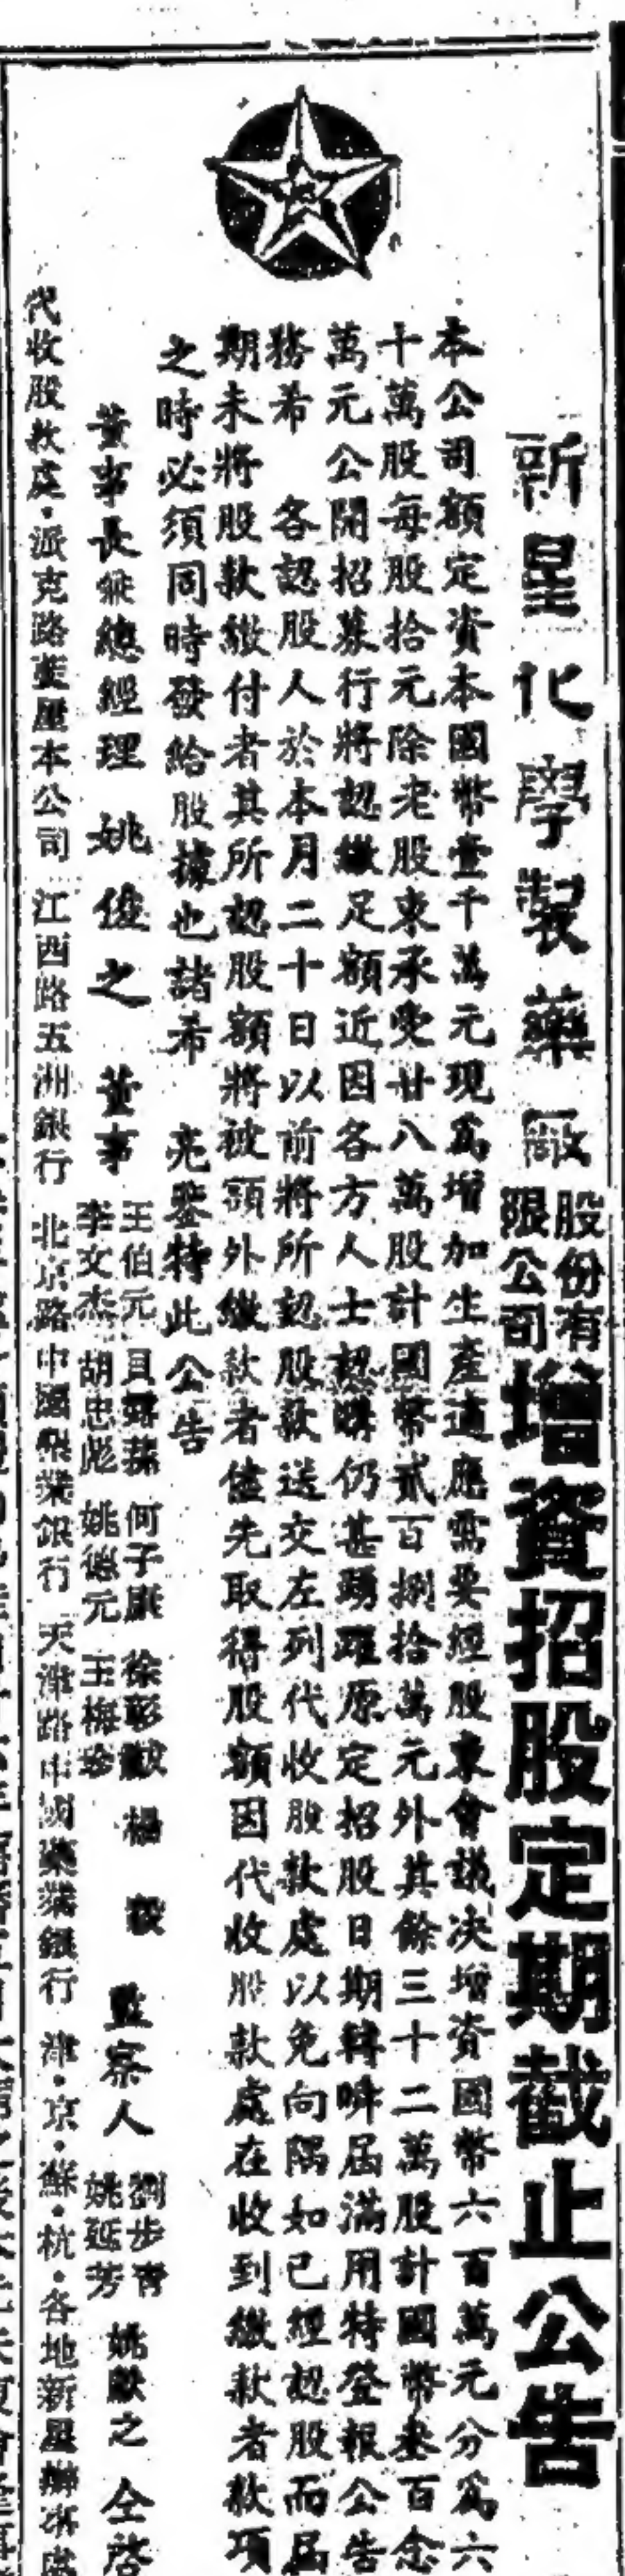 新星化學製藥廠股份有限公司增資招股定期截止公告
本公司額定資本國幣壹千萬元現爲增加生產適應需要經股東會議决增資國幣六百萬元分爲六
十萬股每股拾元除老股東承受廿八萬股計國幣貳百捌拾萬元外其餘三十二萬股計國幣叁百念
萬元公開招募行將認繳足額近因各方人士認購仍甚踴躍原定招股日期轉瞬屆滿用特登報公告
務希 各認股人於本月二十日以前將所認股款送交左列代收股款處以免向隅如已經認股而屆
期未將股款繳付者其所認股額將被額外繳款者儘先取得股額因代收股款處在收到繳款者款項
之時必須同時發給股據也諸希 亮鑒特此公告
董事長兼總經理 姚俊之 董事 王伯元 貝 何子康 徐彭 楊 毅 李文杰 胡忠彪 姚德元 王梅珍 監察人 劉步青 姚延芳 姚獻之 仝啓
代收股款處・派克路藍屋本公司 江西路五洲銀行 北京路中國 業銀行 天津路中國藥業銀行 津・京・蘇・杭・各地新星辦事處